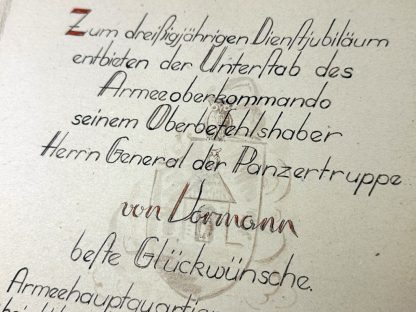 Zum dreißigjährigen Dienstjubiläum
entbieten der Unterstab des
Armeeoberkommando
seinem Oberbefehlshaber
Herrn General der Panzertruppe
von Vormann
beste Glückwünsche.
Armeehauptquartier